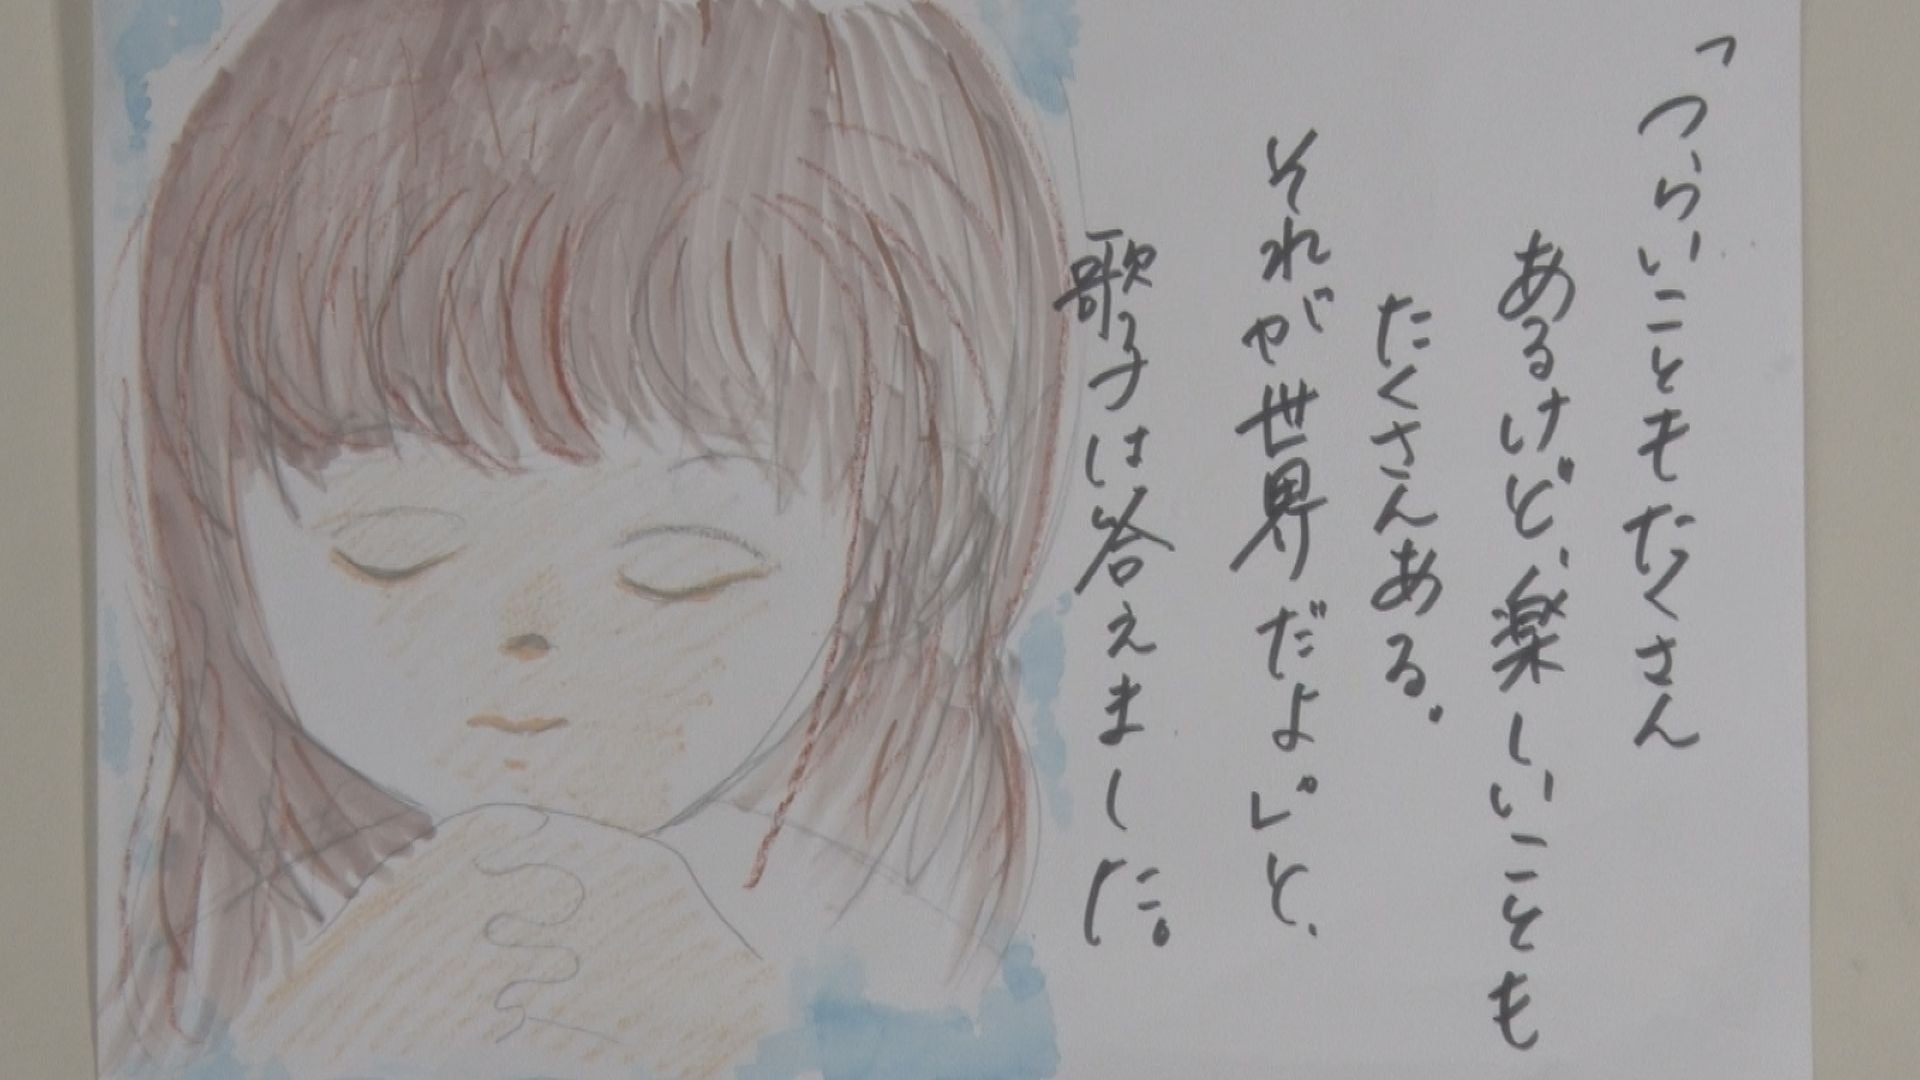 「つらいこともたくさん
あるけど、楽しいことも
たくさんある。
それが世界だよ」と、
歌子は答えました。